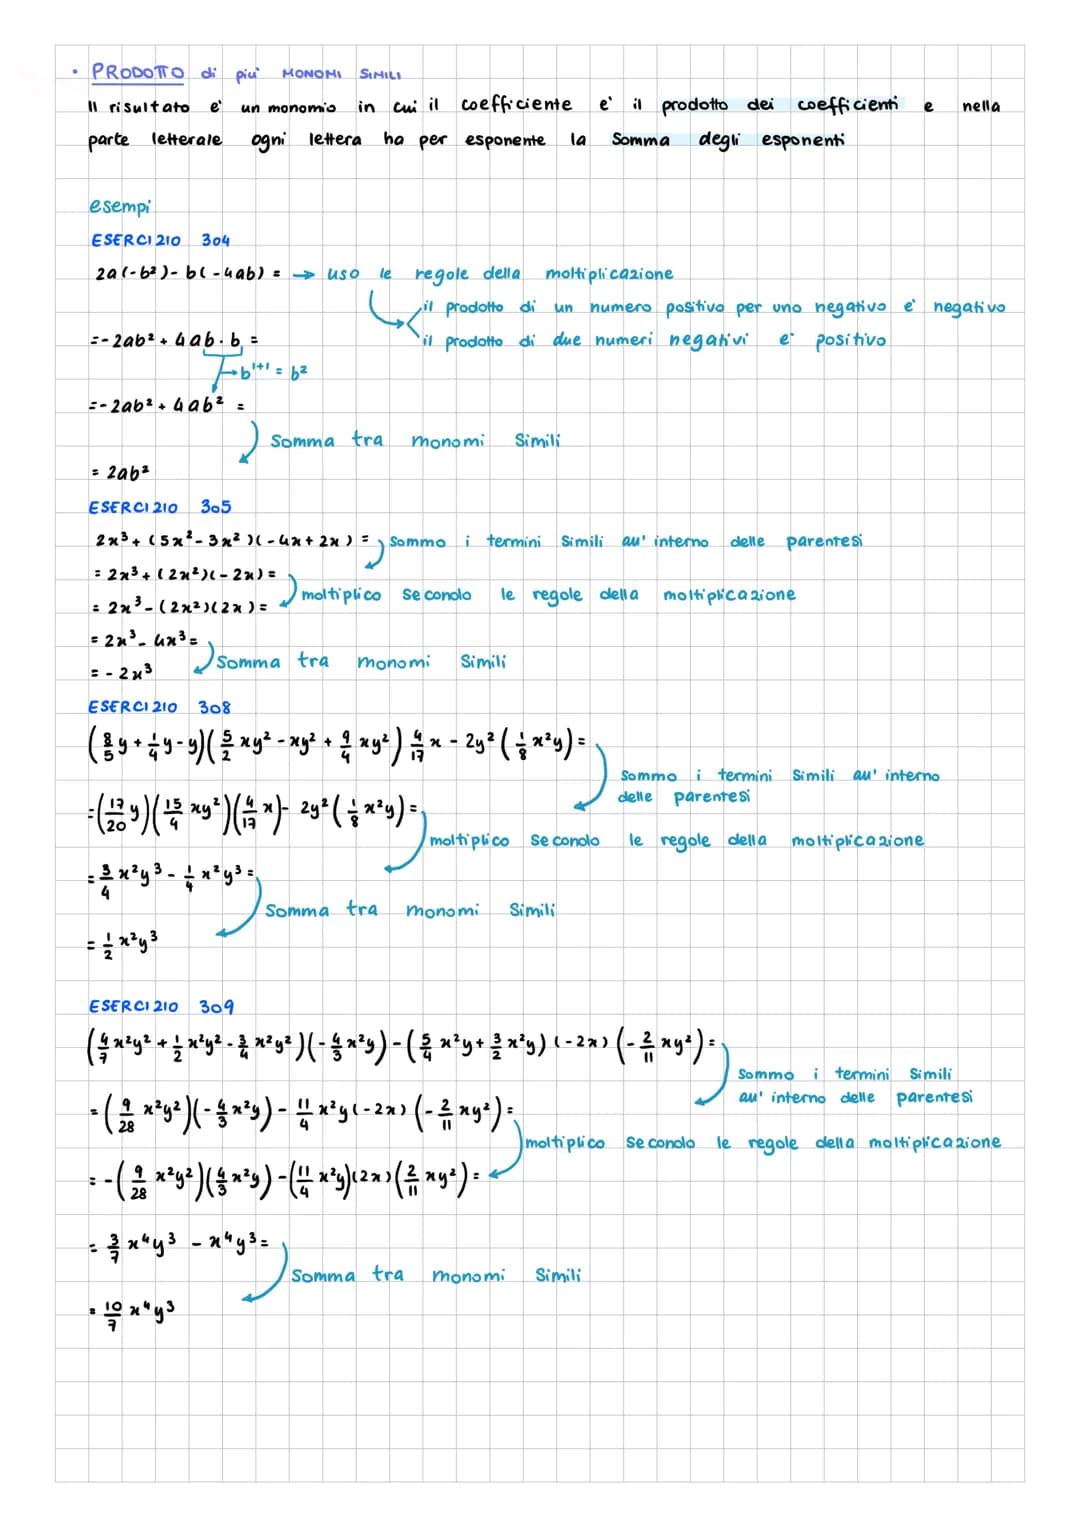 • PRODOTTO di più MONOMI SIMILI
Il risultato e' un monomio in cui il coefficiente e' il prodotto dei coefficienti e nella
parte letterale ogni lettera ha per esponente la somma degli esponenti
esempi
ESERCIZIO 304
2a(-b²)-b(-4ab) = → uso le regole della moltiplicazione
il prodotto di un numero positivo per uno negativo e' negativo
=-2ab²+4ab·b =
il prodotto di due numeri negativi e' positivo
→b¹⁺¹ = b²
=-2ab²+4ab² =
Somma tra monomi Simili
= 2ab²
ESERCIZIO 305
2x³+(5x²-3x²)(-4x+2x) = Sommo i termini Simili all'interno delle parentesi
= 2x³+(2x²)(-2x) =
moltiplico Secondo le regole della moltiplicazione
= 2x³-(2x²)(2x) =
= 2x³-4x³ =
Somma tra monomi Simili
= -2x³
ESERCIZIO 308
(8/5 y + 1/4 y - y)(5/2 xy² - xy² + 9/4 xy²) 4/17 x - 2y² (1/8 x²y) =
Sommo i termini Simili all'interno
delle parentesi
=(17/20 y)(15/4 xy²)(4/17 x) - 2y² (1/8 x²y) =
moltiplico Secondo le regole della moltiplicazione
= 3/4 x²y³ - 1/4 x²y³ =
Somma tra monomi Simili
= 1/2 x²y³
ESERCIZIO 309
(4/7 x²y² + 1/2 x²y² - 3/4 x²y²)(-4/3 x²y) - (5/4 x²y + 3/2 x²y) (-2x) (-2/11 xy²) =
Sommo i termini Simili
all'interno delle parentesi
= (9/28 x²y²)(-4/3 x²y) - 11/4 x²y(-2x) (-2/11 xy²) =
moltiplico Secondo le regole della moltiplicazione
= -(9/28 x²y²)(4/3 x²y) - (11/4 x²y)(2x)(2/11 xy²) =
= 3/7 x⁴y³ - x⁴y³ =
Somma tra monomi Simili
= 10/7 x⁴y³